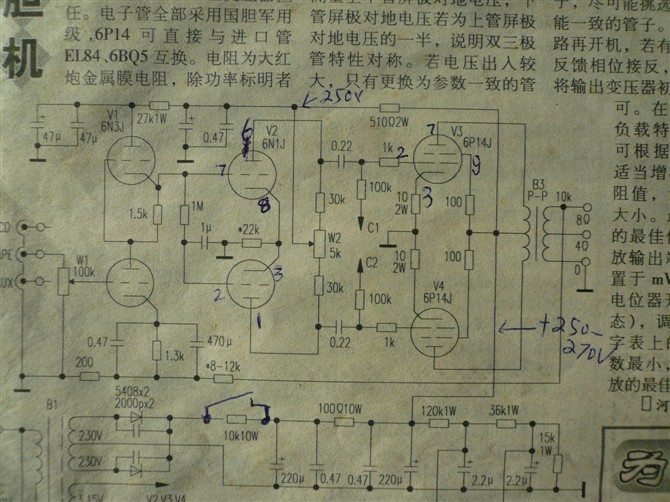 胆
机
任。电子管全部采用国胆军用
级,6P14 可直接与进口管
EL84、6BQ5 互换。电阻为大红
炮金属膜电阻,除功率标明者
管屏极对地电压若为上管屏极
对地电压的一半,说明双三极
管特性对称。若电压出入较
大,只有更换为参数一致的管
子,尽可能挑选
能一致的管子。
路再开机,若有
反馈相位接反,
将输出变压器初
可。在
负载特
可根据
适当增
阻值,
大小。
的最佳
放输出
置于 mV
电位器
态),调
字表上的
数最小,
放的最佳
□河
250V
V1
6N3J
27k1W
47μ
47μ
0.47
V2
6N1J
6
7
8
510Ω2W
0.22
1k
2
7
V3
6P14J
9
3
100k
10
2W
100
B3
P-P
10k
8Ω
4Ω
0
1.5k
1M
1μ
*22k
30k
W2
5k
30k
C1
C2
10
2W
100
CD
W1
100k
2
3
1
0.22
100k
1k
V4
6P14J
+250-
270V
0.47
1.3k
470μ
200
*8-12k
5408x2
2000px2
B1
230V
230V
3.15V
V2 V3 V4
10k10W
100Ω10W
120k1W
36k1W
15k
1W
220μ
0.47
0.47
220μ
2.2μ
2.2μ